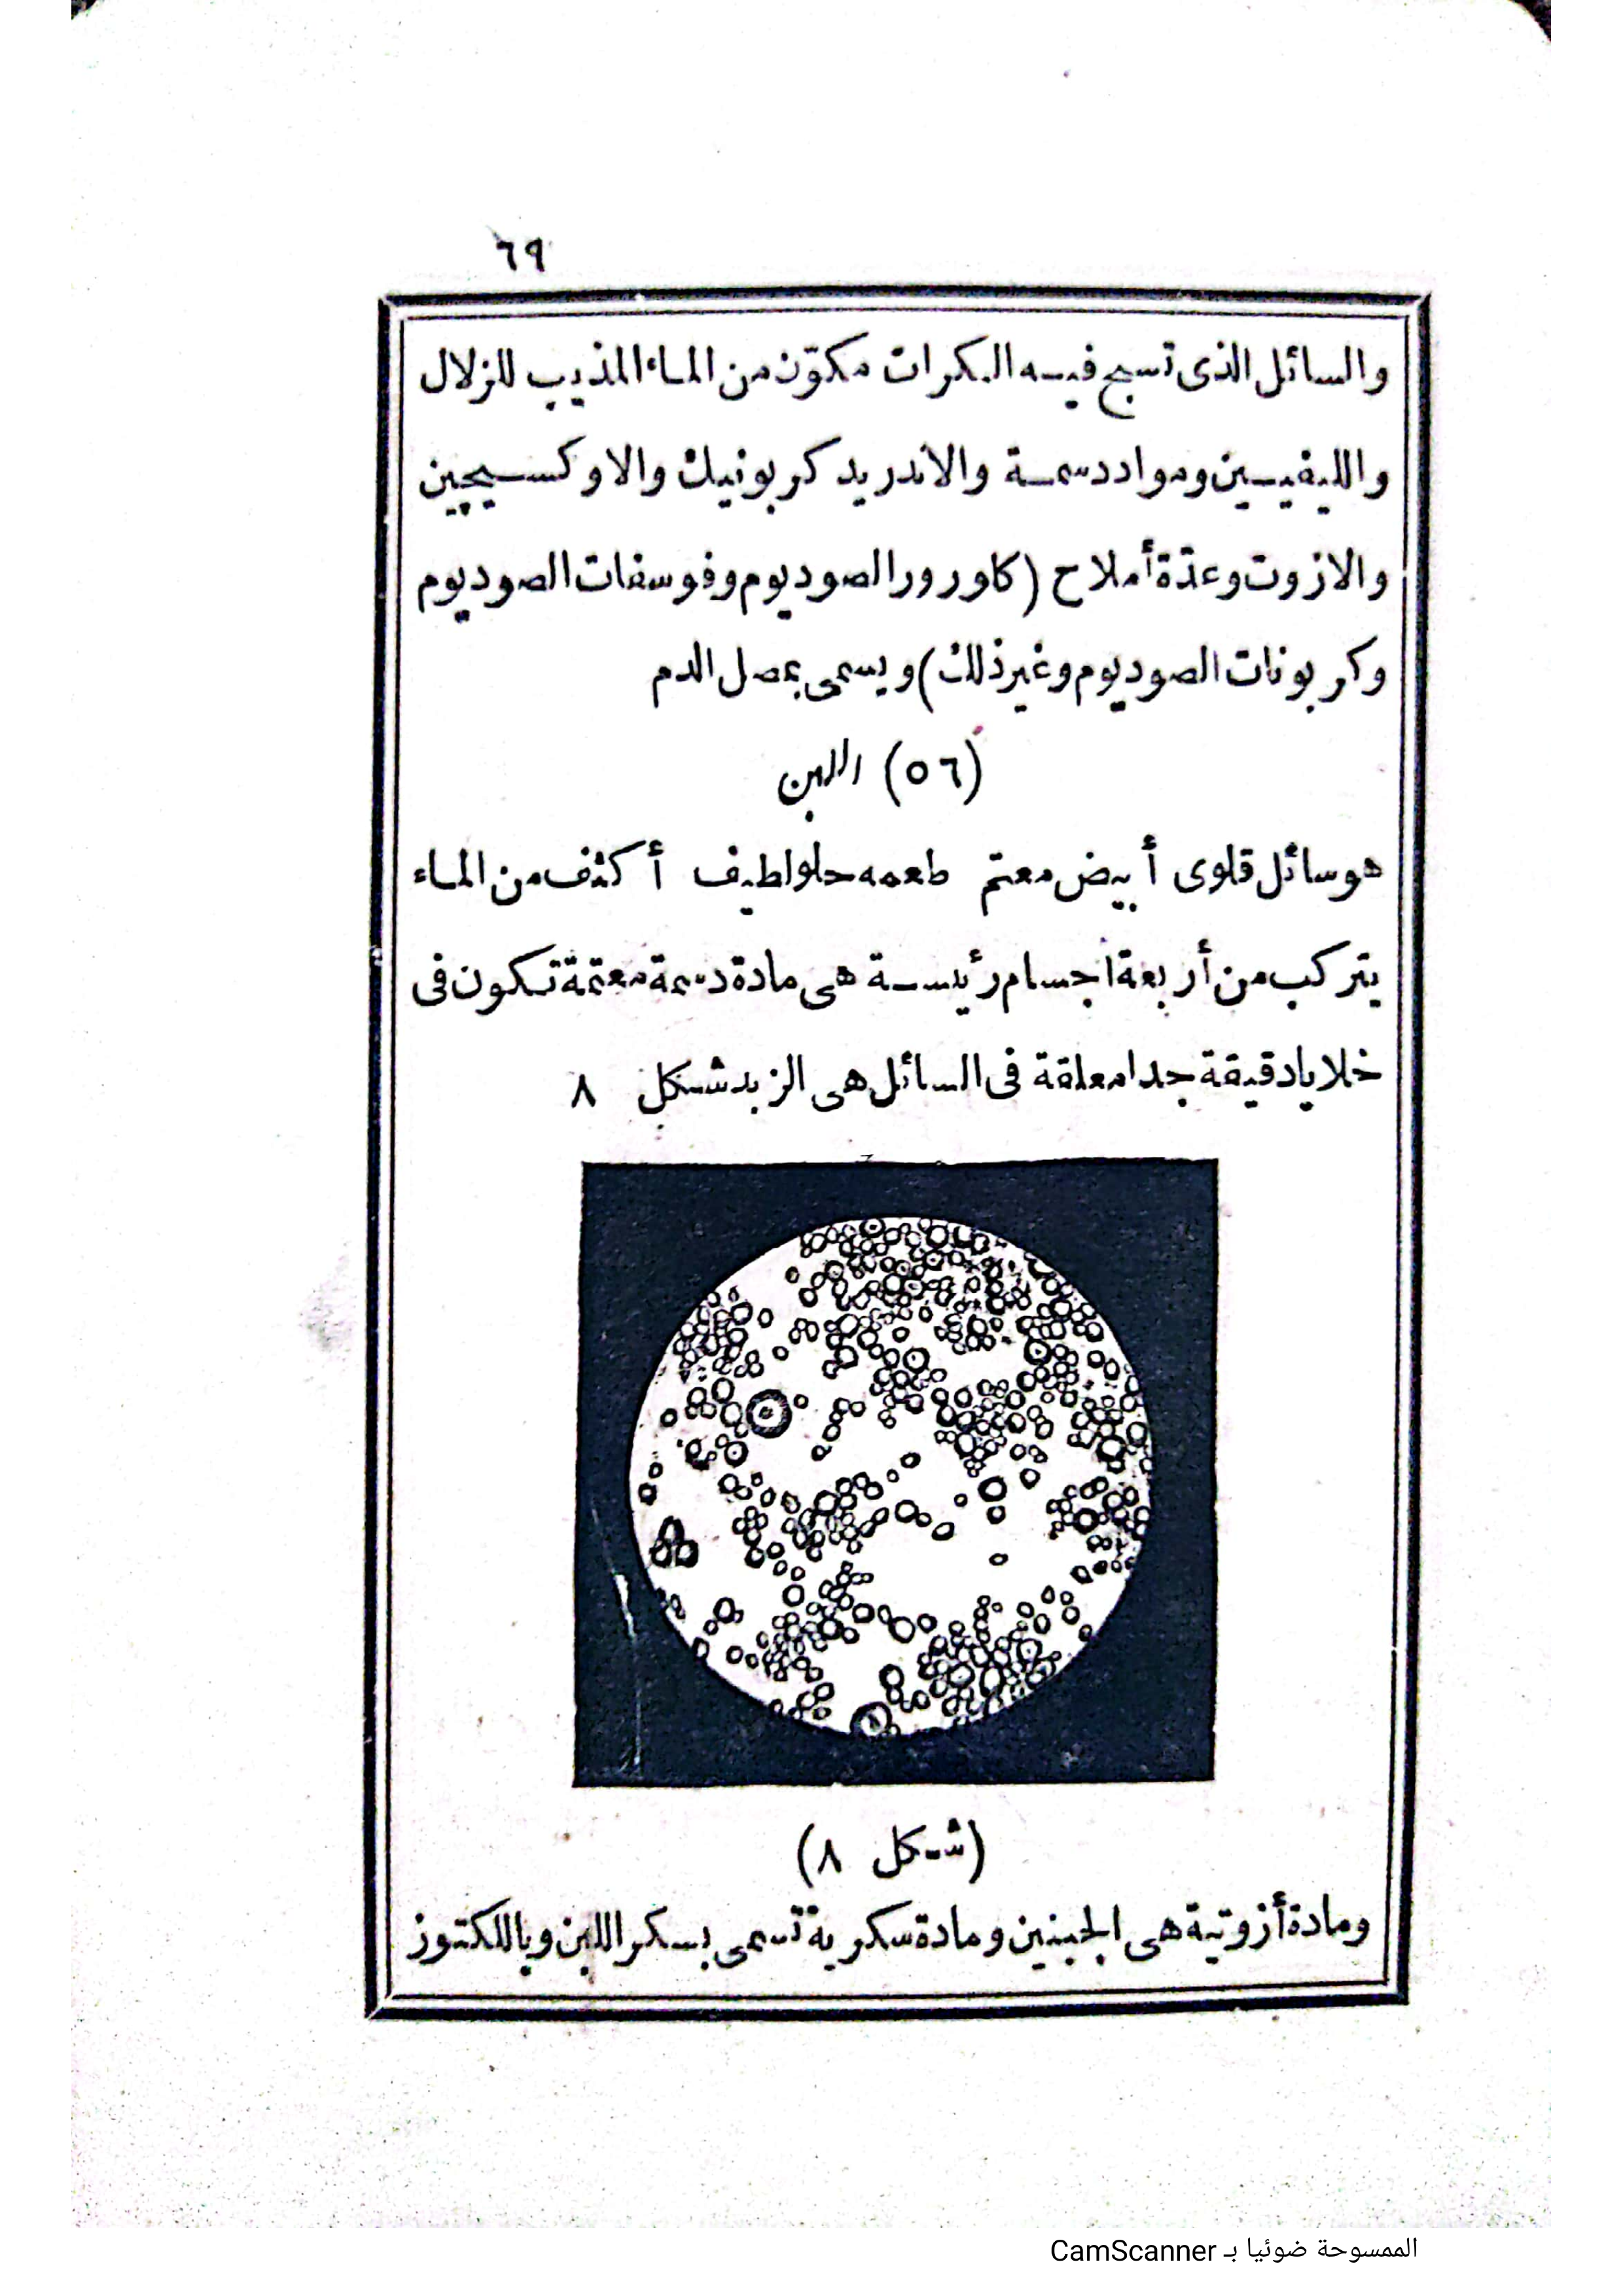 ٦٩
والسائل الذى تسبح فيه الكرات مكوّن من الماء المذيب للزلال
والليفيين ومواد دسمة والاندريد كربونيك والاوكسيچين
والازوت وعدّة أملاح (كلورور الصوديوم وفوسفات الصوديوم
وكربونات الصوديوم وغير ذلك) ويسمى بمصل الدم
(٥٦) اللبن
هو سائل قلوى أبيض معتم طعمه حلو لطيف أكثف من الماء
يتركب من أربعة اجسام رئيسة هى مادة دسمة معتمة تكون فى
خلايا دقيقة جدا معلقة فى السائل هى الزبد شكل ٨
(شكل ٨)
ومادة أزوتية هى الجبنين ومادة سكرية تسمى بسكر اللبن وباللكتوز
الممسوحة ضوئيا بـ CamScanner